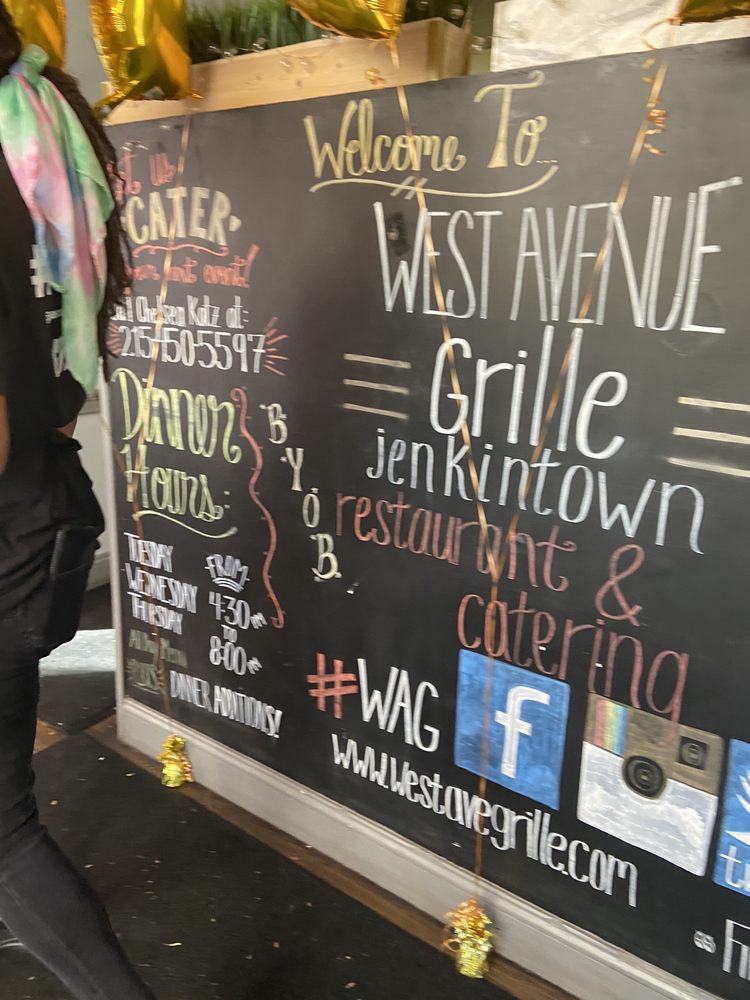 Us
CATER.
event!
Chelsea Katz at:
215-150-5597
Dinner
Hours:
TUESDAY
WEDNESDAY
THURSDAY
FROM
4:30pm
TO
8:00pm
PLUS
DINNER ADDITIONS!
B.
Y.
O.
B.
Welcome To...
WEST AVENUE
Grille
jenkintown
restaurant &
catering
#WAG
f
www.westavegrille.com